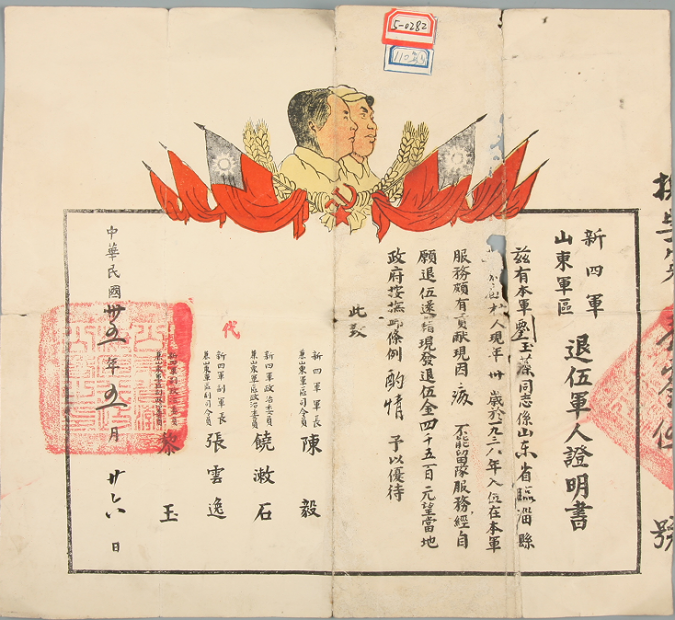 5-0282
新四軍
山東軍區
退伍軍人證明書
茲有本軍劉玉藻同志係山东省臨淄縣
人現年卅歲於一九三八年入伍在本軍
服務頗有貢献現因 不能留隊服務經自
願退伍還 現發退伍金四千五百元望當地
政府按撫卹條例酌情予以優待
此致
新四軍軍長
兼山東軍區司令員
陳毅
新四軍政治委員
兼山東軍區政治委員
饒漱石
代
新四軍副軍長
兼山東軍區副司令員
張雲逸
新四軍副政治委員
兼山東軍區副政治委員
黎玉
中華民國卅五年五月廿六日
號